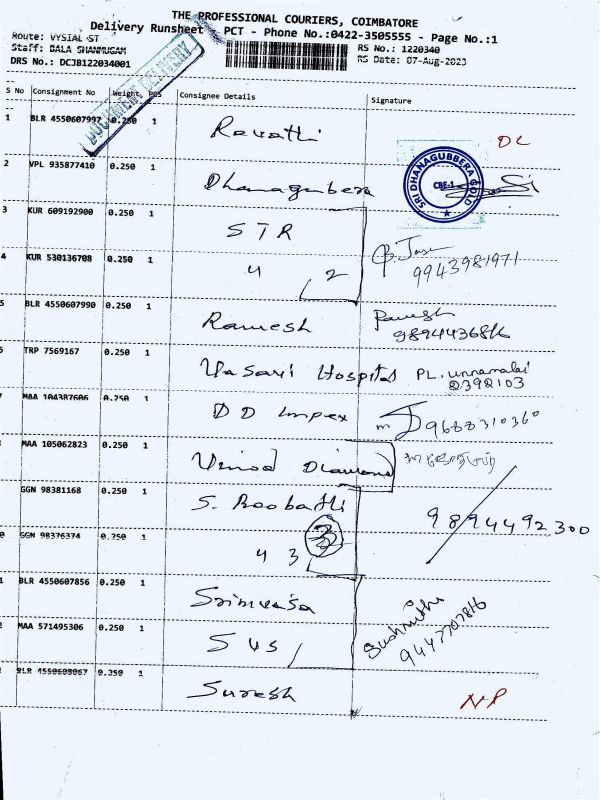 THE PROFESSIONAL COURIERS, COIMBATORE
Delivery Runsheet PCT - Phone No.:0422-3505555 - Page No.:1
Route: VYSIAL ST
RS No.: 1220340
Staff: BALA SHANMUGAM
RS Date: 07-Aug-2023
DRS No.: DCJB122034001
DOCUMENT DELIVERY
S No Consignment No Weight PCS Consignee Details Signature
1 BLR 4550607997 0.250 1 Revathi DL
2 VPL 935877410 0.250 1 Dhanagubbera
SRI DHANAGUBBERA GOLD
CBE-1
3 KUR 609192900 0.250 1 STR
4 KUR 530136708 0.250 1 4 2 9943981971
5 BLR 4550607990 0.250 1 Ramesh Ramesh
9894436816
TRP 7569167 0.250 1 Vasari Hospital PL. Unnamalai
2392103
MAA 104387606 0.250 1 DD Impex 9688310360
MAA 105062823 0.250 1 Vinod Diamond
GGN 98381168 0.250 1 S. Roobathi
9894492300
GGN 98376374 0.250 1 4 3 3
BLR 4550607856 0.250 1 Srinivasa
Sushmitha
9447707816
MAA 571495306 0.250 1 SVS
BLR 4550608067 0.350 1 Suresh NP